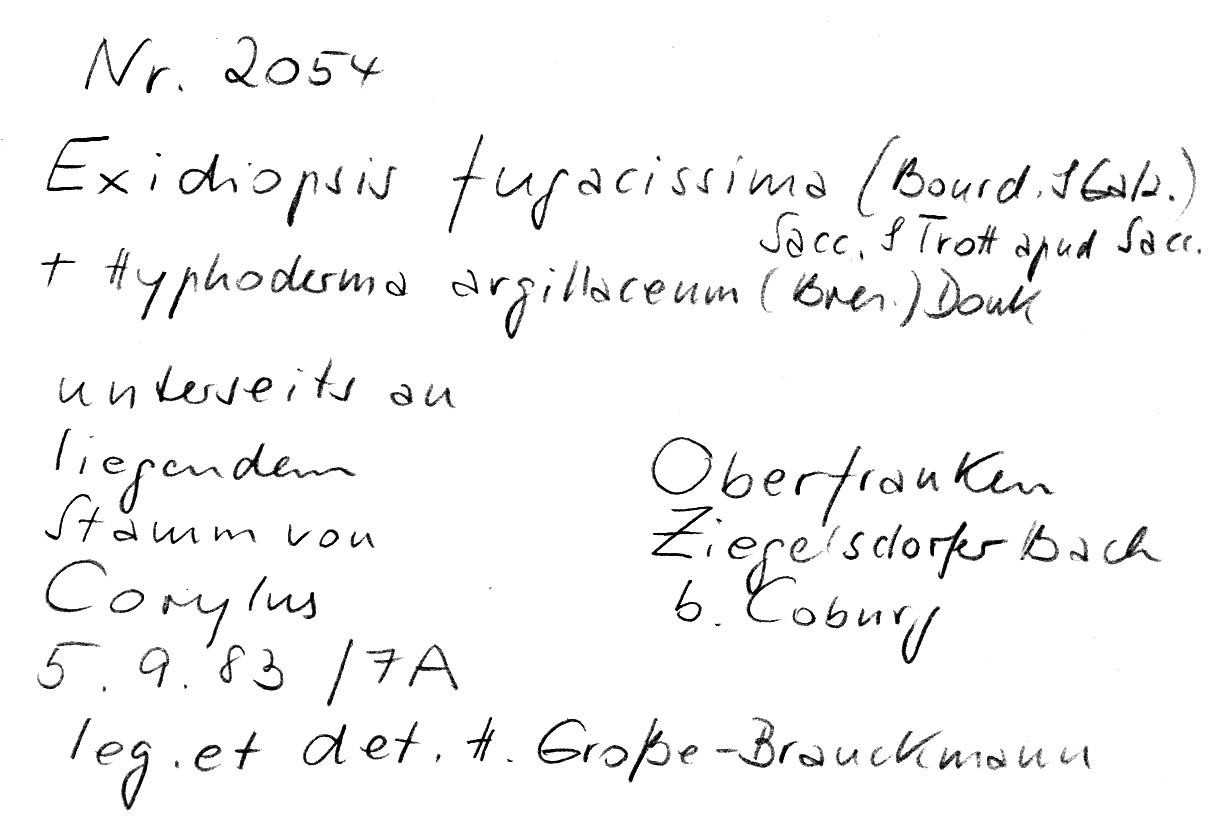 Nr. 2054
Exidiopsis fugacissima (Bourd. & Galz.)
Sacc. & Trott apud Sacc.
+ Hyphoderma argillaceum (Bres.) Donk
unterseits an
liegendem
Stamm von
Corylus
5. 9. 83 / 7A
Oberfranken
Ziegelsdorfer Bach
b. Coburg
leg. et det. H. Große-Brauckmann